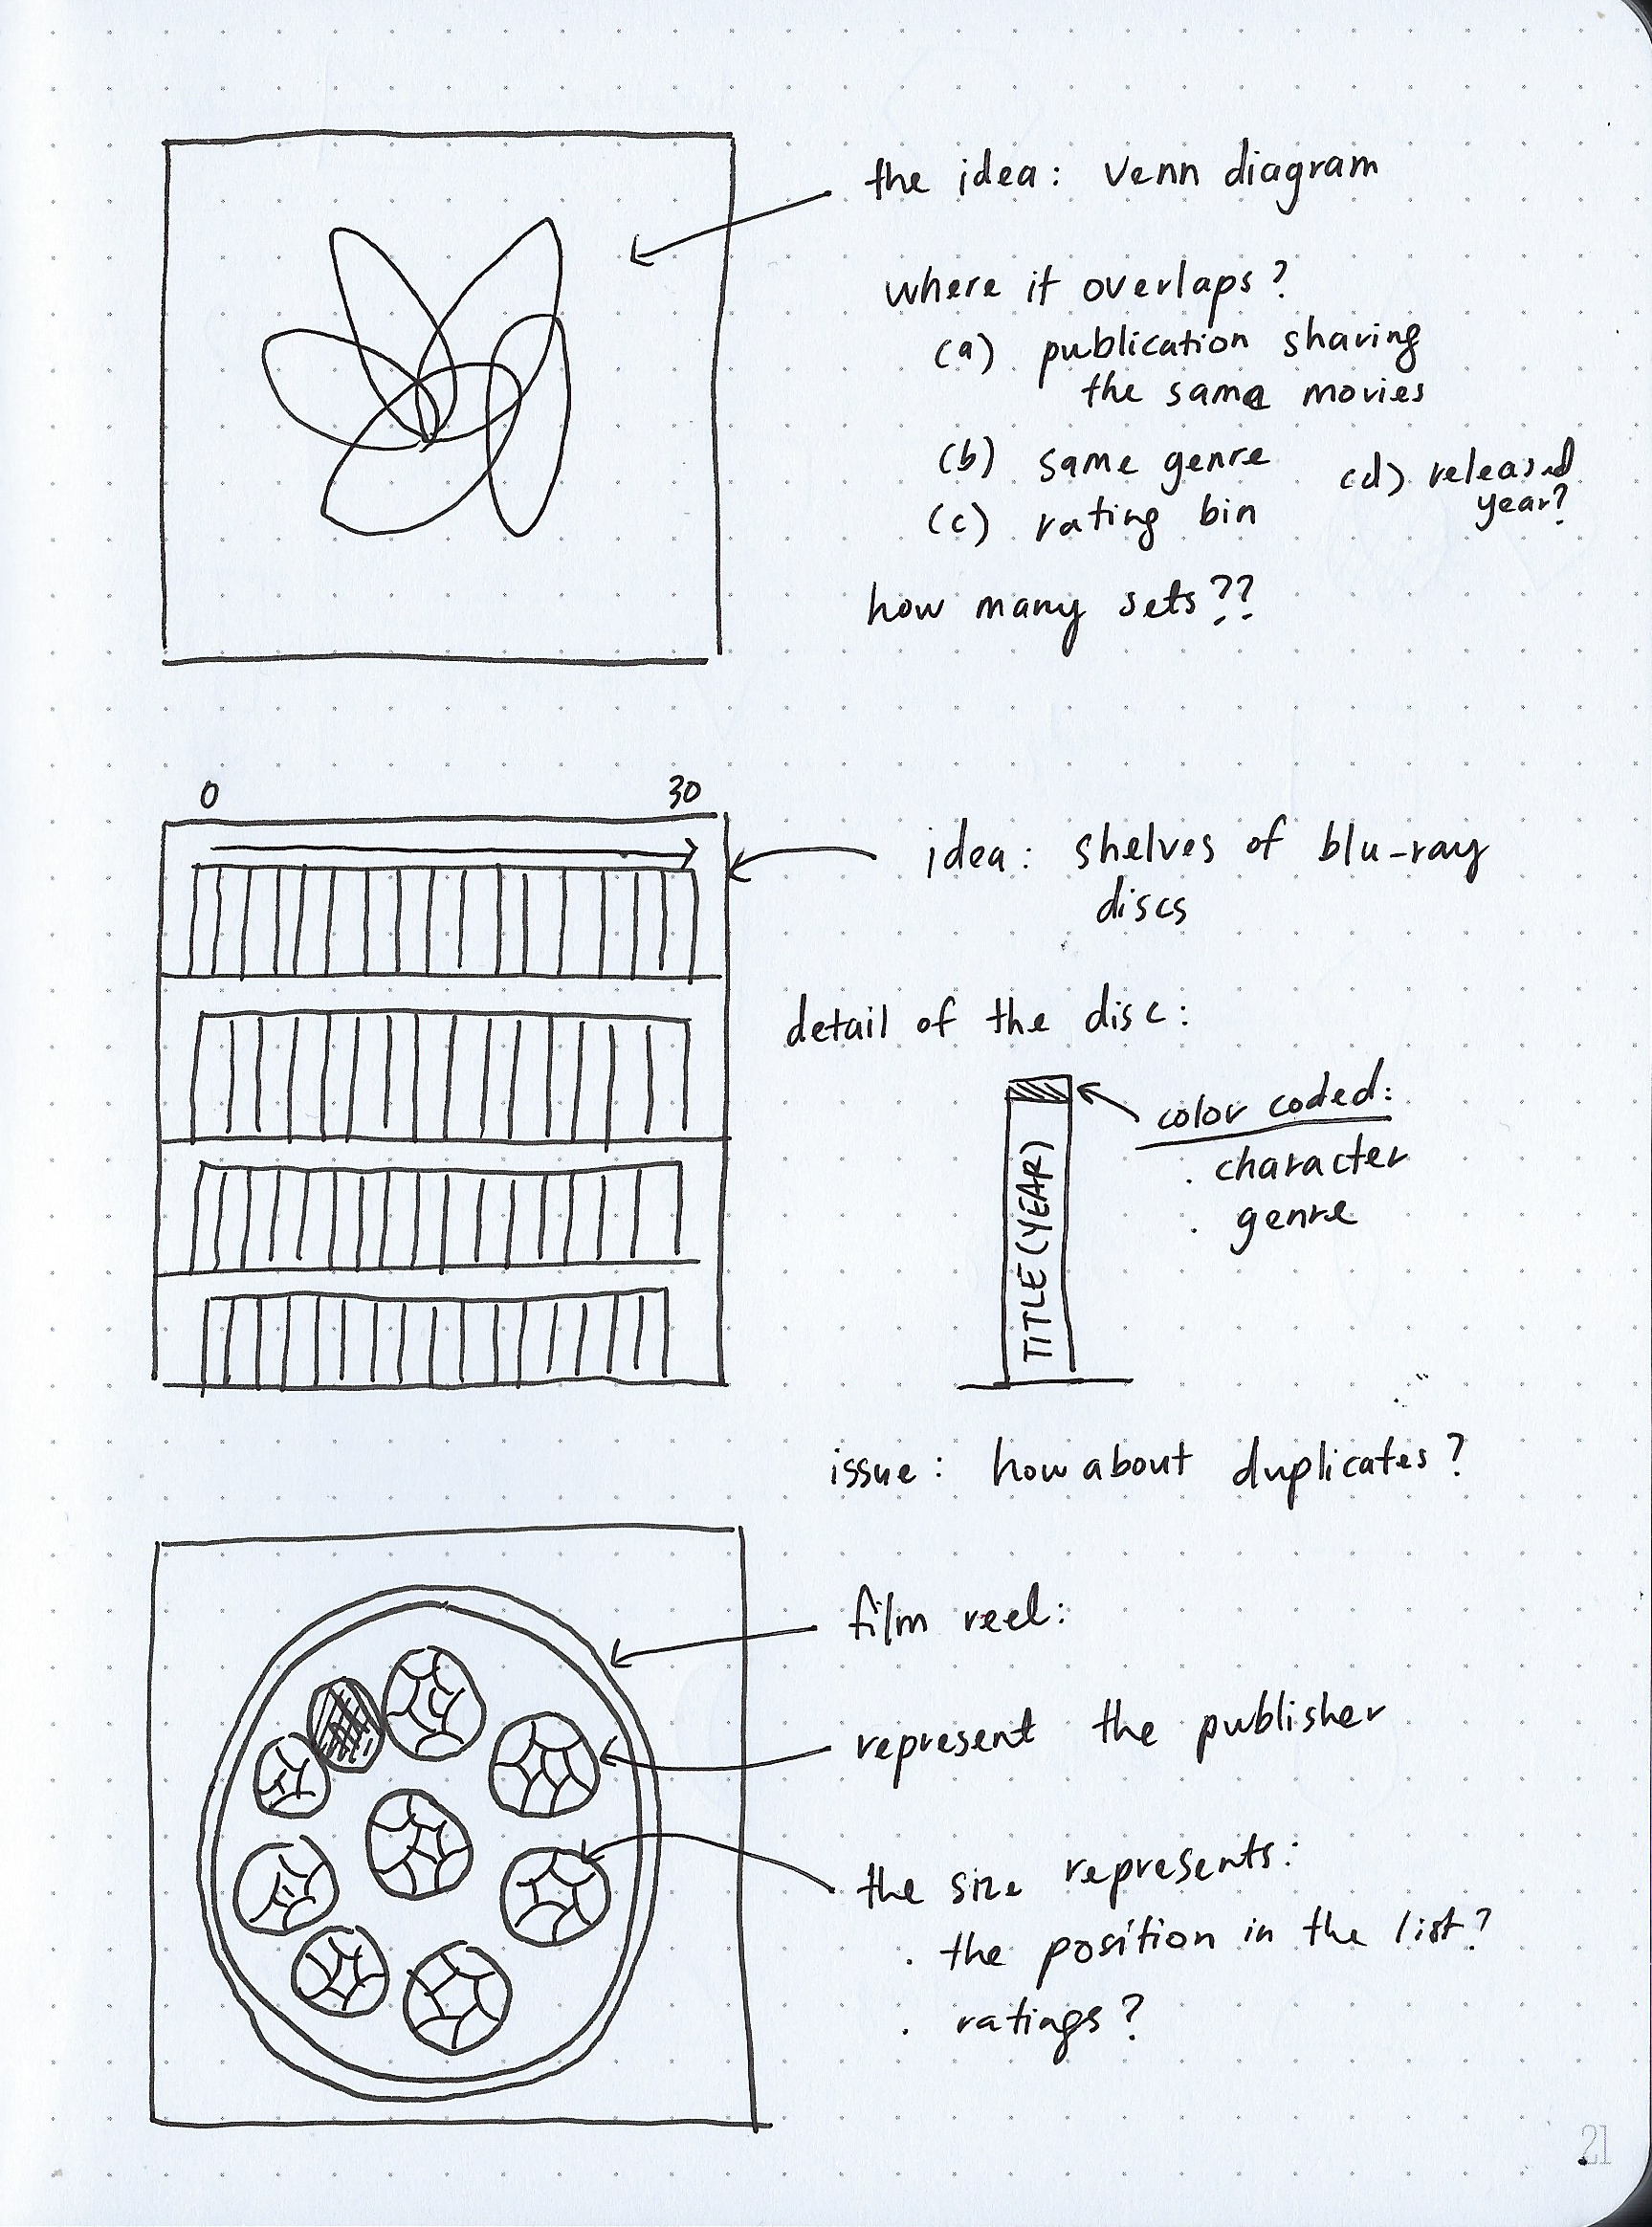 the idea: venn diagram
where it overlaps?
(a) publication sharing
the same movies
(b) same genre
(c) rating bin
(d) released
year?
how many sets??
0 30
idea: shelves of blu-ray
discs
detail of the disc:
color coded:
. character
. genre
TITLE (YEAR)
issue: how about duplicates?
film reel:
represent the publisher
the size represents:
. the position in the list?
. ratings?
21